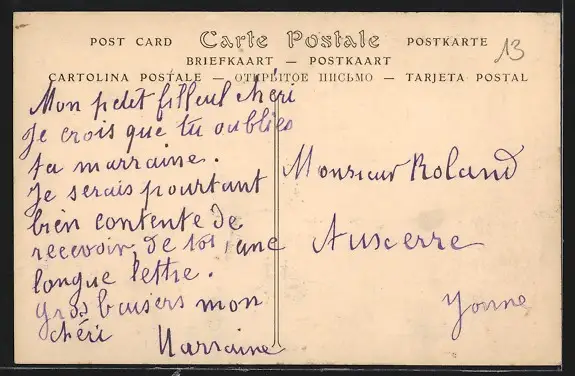 POST CARD Carte Postale POSTKARTE
BRIEFKAART — POSTKAART
CARTOLINA POSTALE — ОТКРЫТОЕ ПИСЬМО — TARJETA POSTAL
13
Mon petit filleul chéri
Je crois que tu oublies
ta marraine.
Je serais pourtant
bien contente de
recevoir, de toi, une
longue lettre.
gros baisers mon
chéri
Marraine
Monsieur Roland
Auxerre
Yonne